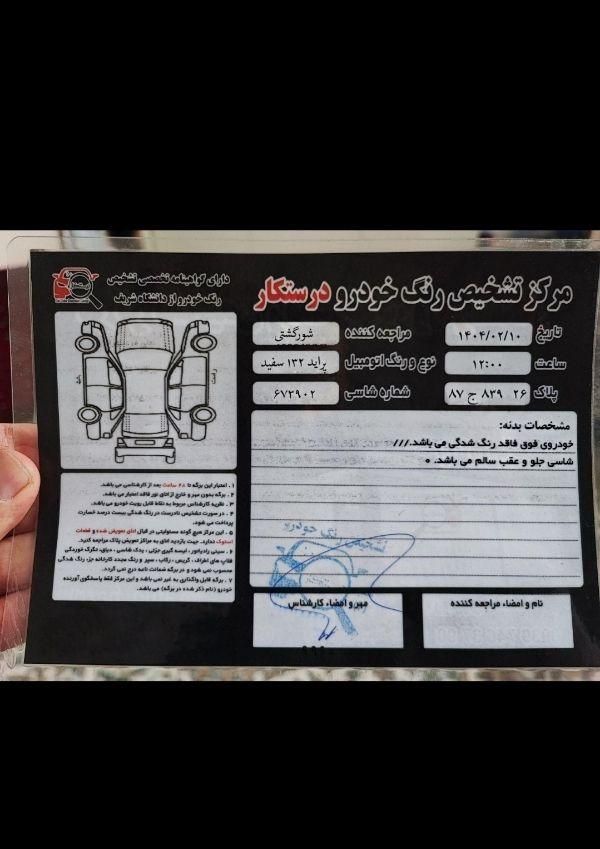 مرکز تشخیص رنگ خودرو درستکار
دارای گواهینامه تخصصی تشخیص
رنگ خودرو از دانشگاه شریف
تاریخ ۱۴۰۴/۰۲/۱۰ مراجعه کننده شورگشتی
ساعت ۱۲:۰۰ نوع و رنگ اتومبیل پراید ۱۳۲ سفید
پلاک ۲۶ ۸۳۹ ج ۸۷ شماره شاسی ۶۷۲۹۰۲
مشخصات بدنه:
خودروی فوق فاقد رنگ شدگی می باشد.///
شاسی جلو و عقب سالم می باشد. ۰
تشخیص رنگ خودرو
نام و امضاء مراجعه کننده
مهر و امضاء کارشناس
راست
چپ
۱ . اعتبار این برگه تا ۴۸ ساعت بعد از کارشناسی می باشد.
۲ . برگه بدون مهر و خارج از اتاق نور فاقد اعتبار می باشد.
۳ . نظریه کارشناس مربوط به نقاط قابل رویت خودرو می باشد.
۴ . در صورت تشخیص نادرست در رنگ شدگی بیست درصد خسارت
پرداخت می شود.
۵ . این مرکز هیچ گونه مسئولیتی در قبال اتاق تعویض شده و قطعات
استوک ندارد. جهت بازدید اتاق به مراکز تعویض پلاک مراجعه کنید.
۶ . سینی رادیاتور ، لیسه گیری جزئی ، پدک شاسی ، دیاق، تگرگ خوردگی
قالپ های اطراف، گریس ، رکاب ، سپر و رنگ مجدد کارخانه جزء رنگ شدگی
محسوب نمی شود و در برگه ضمانت نامه درج نمی گردد.
۷ . برگه قابل واگذاری به غیر نمی باشد و این مرکز فقط پاسخگوی آورنده
خودرو (نام ذکر شده در برگه) می باشد.